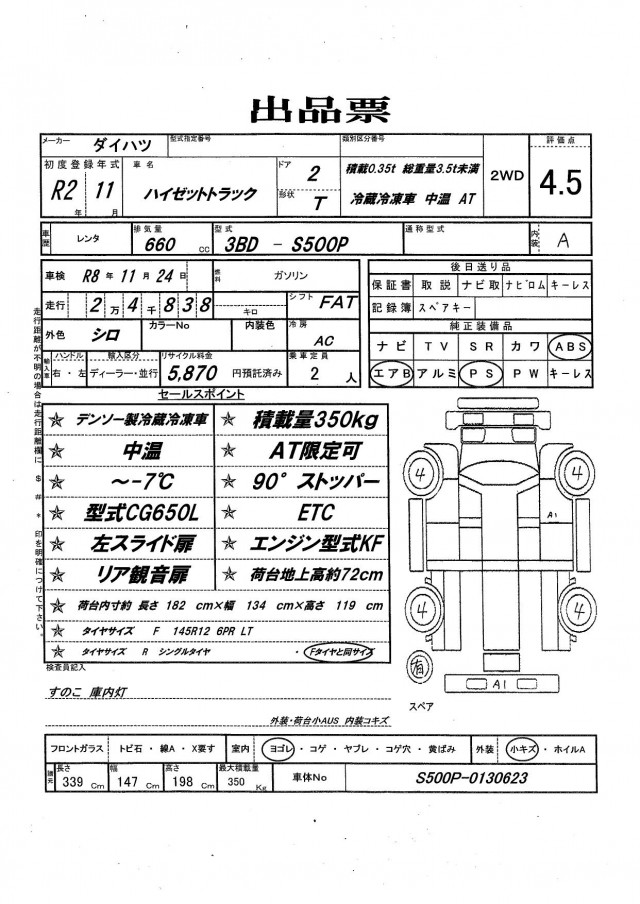 出品票
メーカー ダイハツ 型式指定番号 類別区分番号 評価点
初度登録年式 車名 ドア 2 積載0.35t 総重量3.5t未満 2WD 4.5
R2年 11月 ハイゼットトラック 形状 T 冷蔵冷凍車 中温 AT
車歴 レンタ 排気量 660 cc 型式 3BD - S500P 通称型式 内装 A
車検 R8年 11月 24日 燃料 ガソリン 後日送り品
保証書 取説 ナビ取 ナビロム キーレス
走行 2万4千838 キロ シフト FAT 記録簿 スペアキー
外色 シロ カラーNo 内装色 冷房 AC 純正装備品
ナビ TV SR カワ ABS
輸入車 ハンドル 右・左 輸入区分 ディーラー・並行 リサイクル料金 5,870 円預託済み 乗車定員 2 人
エアB アルミ PS PW キーレス
走行距離が不明の場合は走行距離欄に $ # * 印を明確につけて下さい。
セールスポイント
☆ デンソー製冷蔵冷凍車 ☆ 積載量350kg
☆ 中温 ☆ AT限定可
☆ ~-7℃ ☆ 90°ストッパー
☆ 型式CG650L ☆ ETC
☆ 左スライド扉 ☆ エンジン型式KF
☆ リア観音扉 ☆ 荷台地上高約72cm
☆ 荷台内寸約 長さ 182 cm×幅 134 cm×高さ 119 cm
☆ タイヤサイズ F 145R12 6PR LT
☆ タイヤサイズ R シングルタイヤ ・ Fタイヤと同サイズ
4 4
A1
4 4
有
A1
スペア
検査員記入
すのこ 庫内灯
外装・荷台小AUS 内装コキズ
フロントガラス トビ石・線A・X要す 室内 ヨゴレ・コゲ・ヤブレ・コゲ穴・黄ばみ 外装 小キズ・ホイルA
諸元 長さ 339 Cm 幅 147 Cm 高さ 198 Cm 最大積載量 350 Kg 車体No S500P-0130623